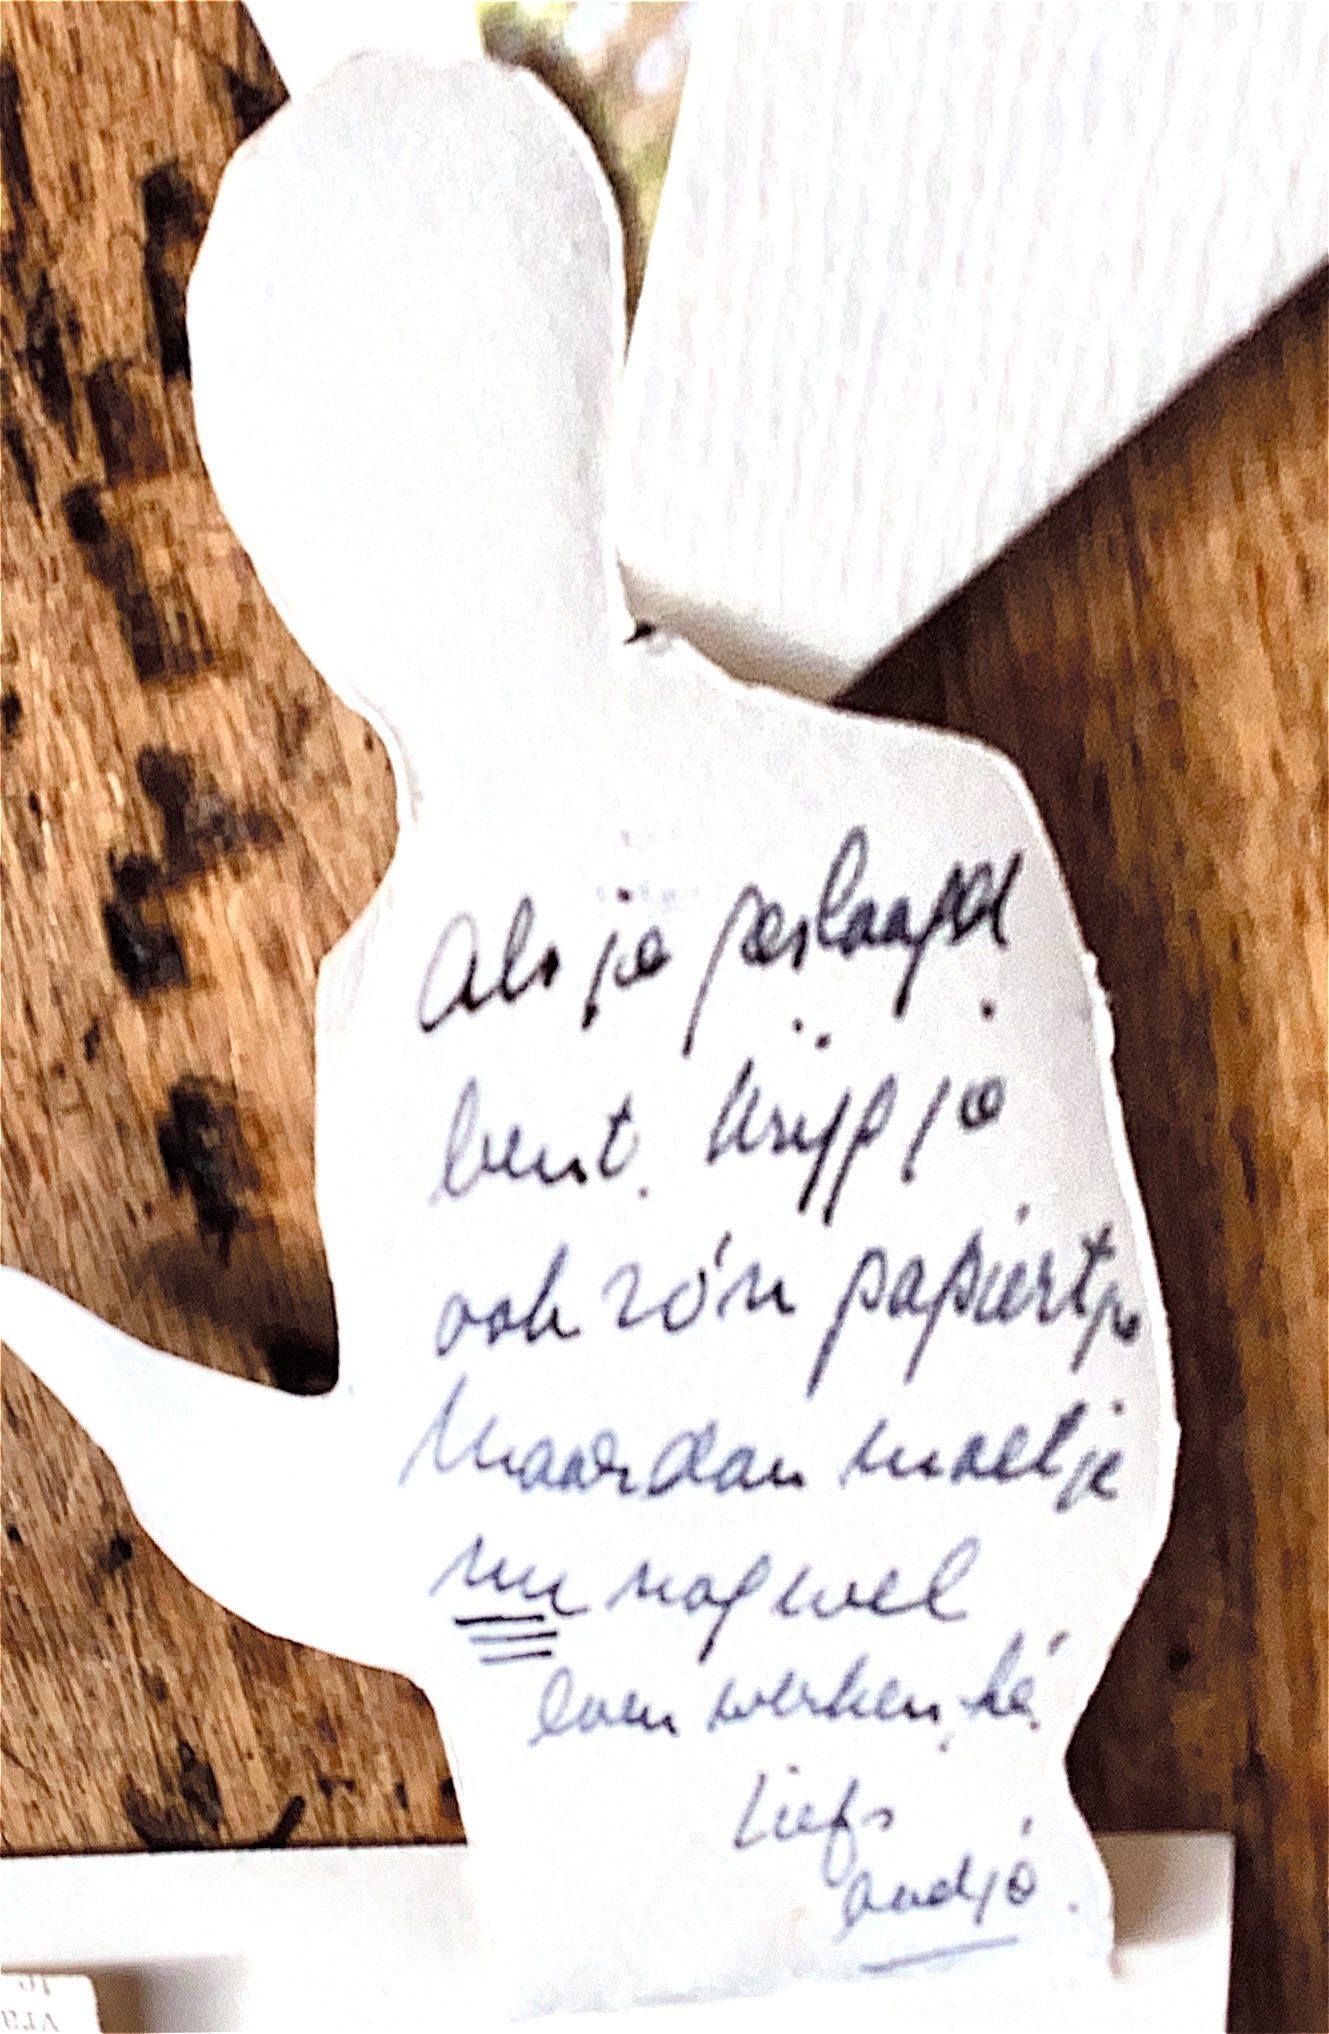 Als je geslaagd
bent. krijg je
ook zó'n papiertje
Maar dan moet je
nu nog wel
even werken, hé.
Liefs